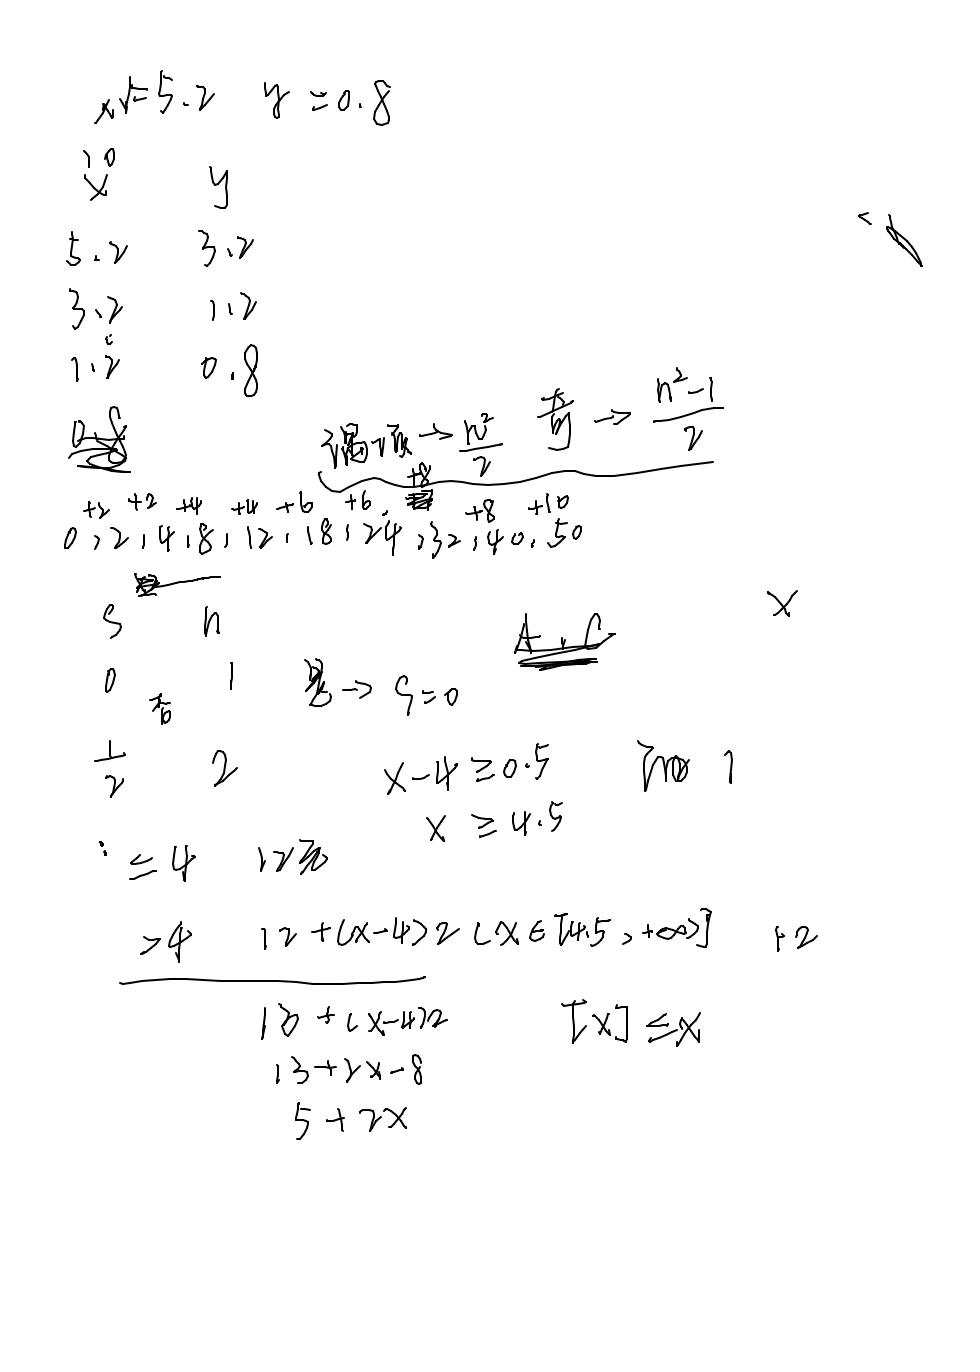 x=5.2 y=0.8
10
x y
5.2 3.2
3.2 1.2
1.2 0.8
0.8
偶项→n²/2 奇→(n²-1)/2
+2 +2 +4 +4 +6 +6 +8 +8 +10
0,2,4,8,12,18,24,32,40,50
S n
A,C
x
0 1
是→S=0
否
1/2 2
x-4≥0.5
1
x≥4.5
≤4 12元
>4 12+(x-4)2(x∈[4.5,+∞)] +2
13+(x-4)2
[x]≤x
13+2x-8
5+2x